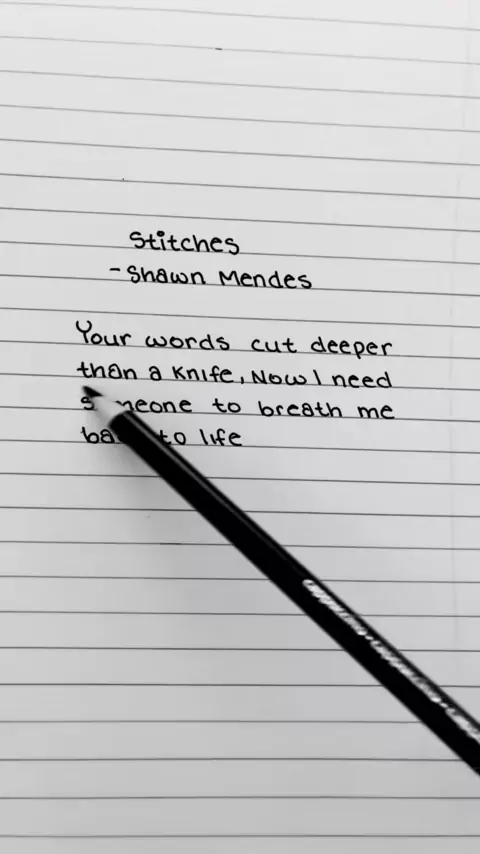 Stitches
- Shawn Mendes
Your words cut deeper
than a knife, Now I need
someone to breath me
back to life